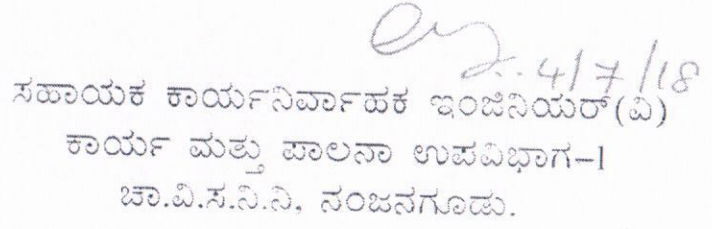 4/7/18
ಸಹಾಯಕ ಕಾರ್ಯನಿರ್ವಾಹಕ ಇಂಜಿನಿಯರ್(ವಿ)
ಕಾರ್ಯ ಮತ್ತು ಪಾಲನಾ ಉಪವಿಭಾಗ-1
ಚಾ.ವಿ.ಸ.ನಿ.ನಿ, ನಂಜನಗೂಡು.